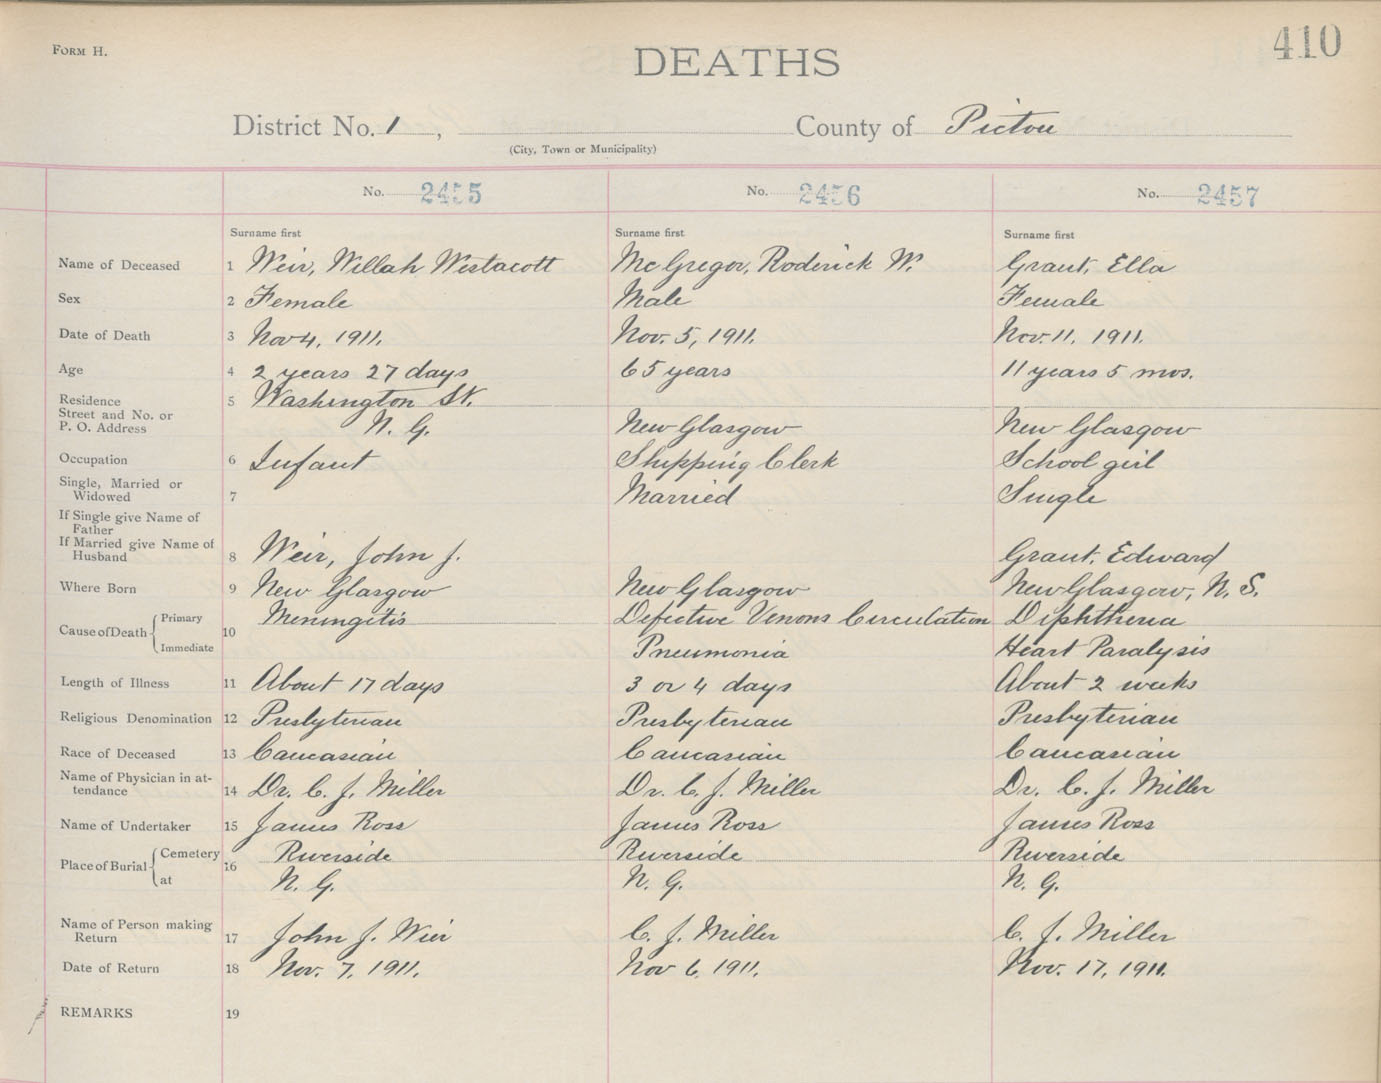 FORM H.
410
DEATHS
District No. 1 , County of Pictou
(City, Town or Municipality)
No. 2455 No. 2456 No. 2457
Surname first Surname first Surname first
Name of Deceased 1 Weir, Willah Westacott McGregor, Roderick W. Grant, Ella
Sex 2 Female Male Female
Date of Death 3 Nov 4, 1911. Nov. 5, 1911. Nov. 11, 1911.
Age 4 2 years 27 days 65 years 11 years 5 mos.
Residence 5 Washington St.
Street and No. or
P. O. Address N. G. New Glasgow New Glasgow
Occupation 6 Infant Shipping Clerk School girl
Single, Married or
Widowed 7 Married Single
If Single give Name of
Father
If Married give Name of
Husband 8 Weir, John J. Grant, Edward
Where Born 9 New Glasgow New Glasgow New Glasgow, N. S.
Cause of Death Primary 10 Meningitis Defective Venous Circulation Diphtheria
Immediate Pneumonia Heart Paralysis
Length of Illness 11 About 17 days 3 or 4 days About 2 weeks
Religious Denomination 12 Presbyterian Presbyterian Presbyterian
Race of Deceased 13 Caucasian Caucasian Caucasian
Name of Physician in at-
tendance 14 Dr. C. J. Miller Dr. C. J. Miller Dr. C. J. Miller
Name of Undertaker 15 James Ross James Ross James Ross
Place of Burial Cemetery 16 Riverside Riverside Riverside
at N. G. N. G. N. G.
Name of Person making
Return 17 John J. Weir C. J. Miller C. J. Miller
Date of Return 18 Nov. 7, 1911. Nov 6, 1911. Nov. 17, 1911.
REMARKS 19